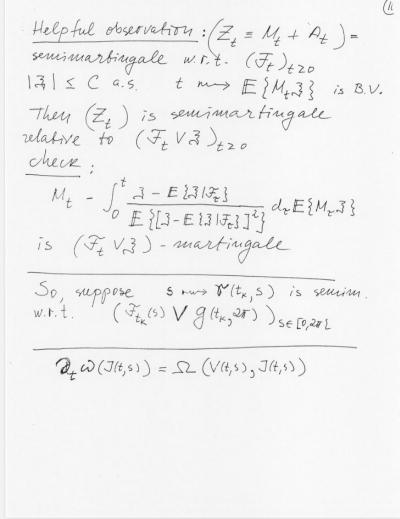 11
Helpful observation: (Z_t ≡ M_t + A_t) =
semimartingale w.r.t. (ℱ_t)_{t≥0}
|𝔷| ≤ C a.s. t ⟿ 𝔼{M_t 𝔷} is B.V.
Then (Z_t) is semimartingale
relative to (ℱ_t ∨ 𝔷)_{t≥0}
check:
M_t - ∫_0^t (𝔷 - E{𝔷|ℱ_τ}) / (E{[𝔷 - E{𝔷|ℱ_τ}]^2}) d_τ 𝔼{M_τ 𝔷}
is (ℱ_t ∨ 𝔷) - martingale
So, suppose s ⟿ γ(t_k, s) is semim.
w.r.t. (ℱ_{t_k}(s) ∨ g(t_k, 2π))_{s∈[0,2π[}
∂_t ω(J(t,s)) = Ω(V(t,s), J(t,s))